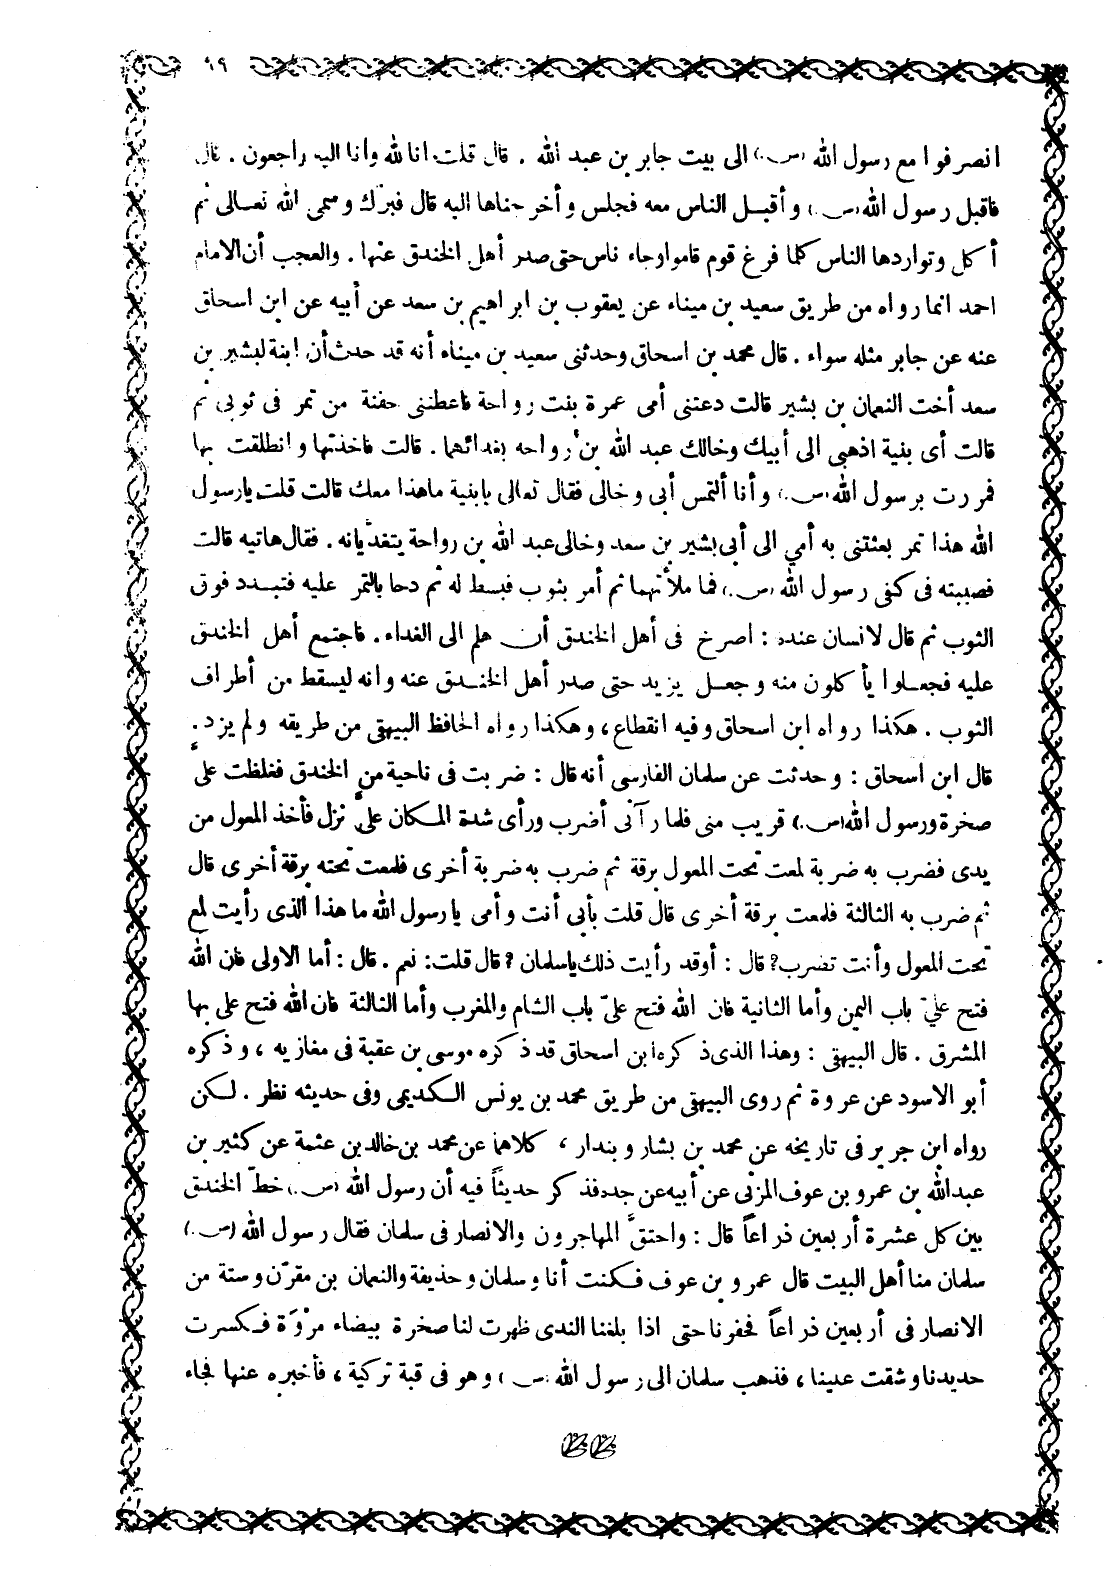 ٩٩
انصرفوا مع رسول الله (س.) الى بيت جابر بن عبد الله . قال قلت انا لله وانا اليه راجعون . قال
فاقبل رسول الله (س.) وأقبل الناس معه فجلس وأخرجناها اليه قال فبرّك وسمى الله تعالى ثم
أكل وتواردها الناس كلما فرغ قوم قاموا وجاء ناس حتى صدر أهل الخندق عنها . والعجب أن الامام
احمد انما رواه من طريق سعيد بن ميناء عن يعقوب بن ابراهيم بن سعد عن أبيه عن ابن اسحاق
عنه عن جابر مثله سواء . قال محمد بن اسحاق وحدثنى سعيد بن ميناء أنه قد حدث أن ابنة لبشير بن
سعد أخت النعمان بن بشير قالت دعتنى أمى عمرة بنت رواحة فاعطتنى حفنة من تمر فى ثوبى ثم
قالت أى بنية اذهبى الى أبيك وخالك عبد الله بن رواحه بغدائهما . قالت فاخذتها وانطلقت بها
فمررت برسول الله (س.) وأنا ألتمس أبى وخالى فقال تعالى يابنية ماهذا معك قالت قلت يارسول
الله هذا تمر بعثتنى به أمي الى أبى بشير بن سعد وخالى عبد الله بن رواحة يتغدّيانه . فقال هاتيه قالت
فصببته فى كفى رسول الله (س.) فما ملأتهما ثم أمر بثوب فبسط له ثم دحا بالتمر عليه فتبدد فوق
الثوب ثم قال لانسان عنده : اصرخ فى أهل الخندق أن هلم الى الغداء . فاجتمع أهل الخندق
عليه فجعلوا يأكلون منه وجعل يزيد حتى صدر أهل الخندق عنه وانه ليسقط من أطراف
الثوب . هكذا رواه ابن اسحاق وفيه انقطاع ، وهكذا رواه الحافظ البيهقى من طريقه ولم يزد .
قال ابن اسحاق : وحدثت عن سلمان الفارسى أنه قال : ضربت فى ناحية من الخندق فغلظت علىَّ
صخرة ورسول الله (س.) قريب منى فلما رآنى أضرب ورأى شدة المكان علىَّ نزل فأخذ المعول من
يدى فضرب به ضربة لمعت تحت المعول برقة ثم ضرب به ضربة أخرى فلمعت تحته برقة أخرى قال
ثم ضرب به الثالثة فلمعت برقة أخرى قال قلت بأبى أنت وأمى يا رسول الله ما هذا الذى رأيت لمع
تحت المعول وأنت تضرب؟ قال : أوقد رأيت ذلك ياسلمان ؟ قال قلت : نعم . قال : أما الاولى فان الله
فتح عليّ باب اليمن وأما الثانية فان الله فتح علىّ باب الشام والمغرب وأما الثالثة فان الله فتح على بها
المشرق . قال البيهقى : وهذا الذى ذكره ابن اسحاق قد ذكره موسى بن عقبة فى مغازيه ، وذكره
أبو الاسود عن عروة ثم روى البيهقى من طريق محمد بن يونس الكديمى وفى حديثه نظر . لكن
رواه ابن جرير فى تاريخه عن محمد بن بشار وبندار ، كلاهما عن محمد بن خالد بن عثمة عن كثير بن
عبدالله بن عمرو بن عوف المزنى عن أبيه عن جده فذكر حديثاً فيه أن رسول الله (س.) خطّ الخندق
بين كل عشرة أربعين ذراعاً قال : واحتقَّ المهاجرون والانصار فى سلمان فقال رسول الله (س.)
سلمان منا أهل البيت قال عمرو بن عوف فكنت أنا وسلمان وحذيفة والنعمان بن مقرّن وستة من
الانصار فى أربعين ذراعاً فحفرنا حتى اذا بلغنا الندى ظهرت لنا صخرة بيضاء مرْوَة فكسرت
حديدنا وشقت علينا ، فذهب سلمان الى رسول الله (س.) وهو فى قبة تركية ، فأخبره عنها فجاء